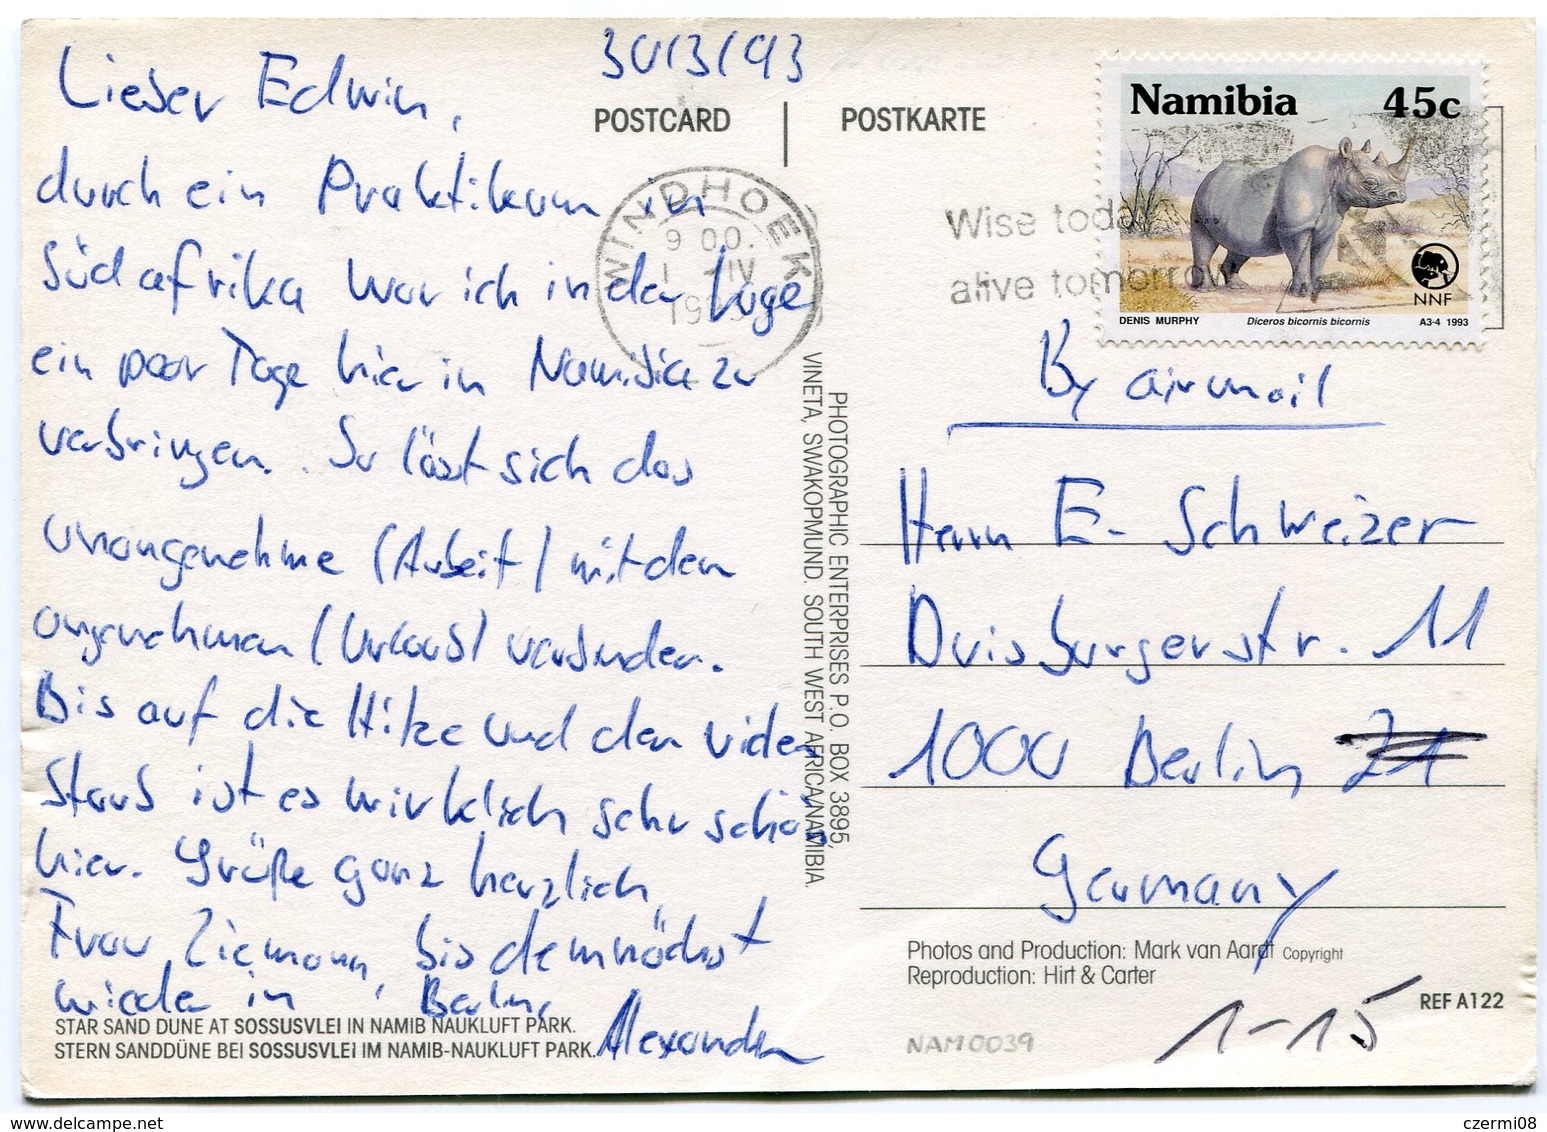 30/3/93
Lieber Edwin,
durch ein Praktikum in
Südafrika war ich in der Lage
ein paar Tage hier in Namibia zu
verbringen. So läßt sich das
unangenehme (Arbeit) mit dem
angenehmen (Urlaub) verbinden.
Bis auf die Hitze und den vielen
Staub ist es wirklich sehr schön
hier. Grüße ganz herzlich
Frau Ziemann, bis demnächst
wieder in Berlin,
Alexander
STAR SAND DUNE AT SOSSUSVLEI IN NAMIB NAUKLUFT PARK.
STERN SANDDÜNE BEI SOSSUSVLEI IM NAMIB-NAUKLUFT PARK.
POSTCARD | POSTKARTE
WINDHOEK
9 00.
1 -IV
1993
Wise today
alive tomorrow
Namibia 45c
NNF
DENIS MURPHY Diceros bicornis bicornis A3-4 1993
PHOTOGRAPHIC ENTERPRISES P.O. BOX 3895,
VINETA, SWAKOPMUND. SOUTH WEST AFRICA/NAMIBIA.
By airmail
Herrn E. Schweizer
Duisburgerstr. 11
1000 Berlin 21
Germany
Photos and Production: Mark van Aardt Copyright
Reproduction: Hirt & Carter
REF A122
1-15
NAM0039
czermi08